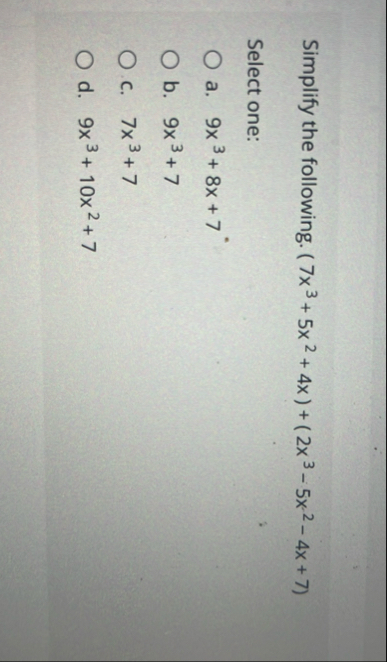 Simplify the following. ( 7x³ + 5x² + 4x ) + ( 2x³ – 5x² – 4x + 7)
Select one:
a. 9x³ + 8x + 7
b. 9x³ + 7
c. 7x³ + 7
d. 9x³ + 10x² + 7